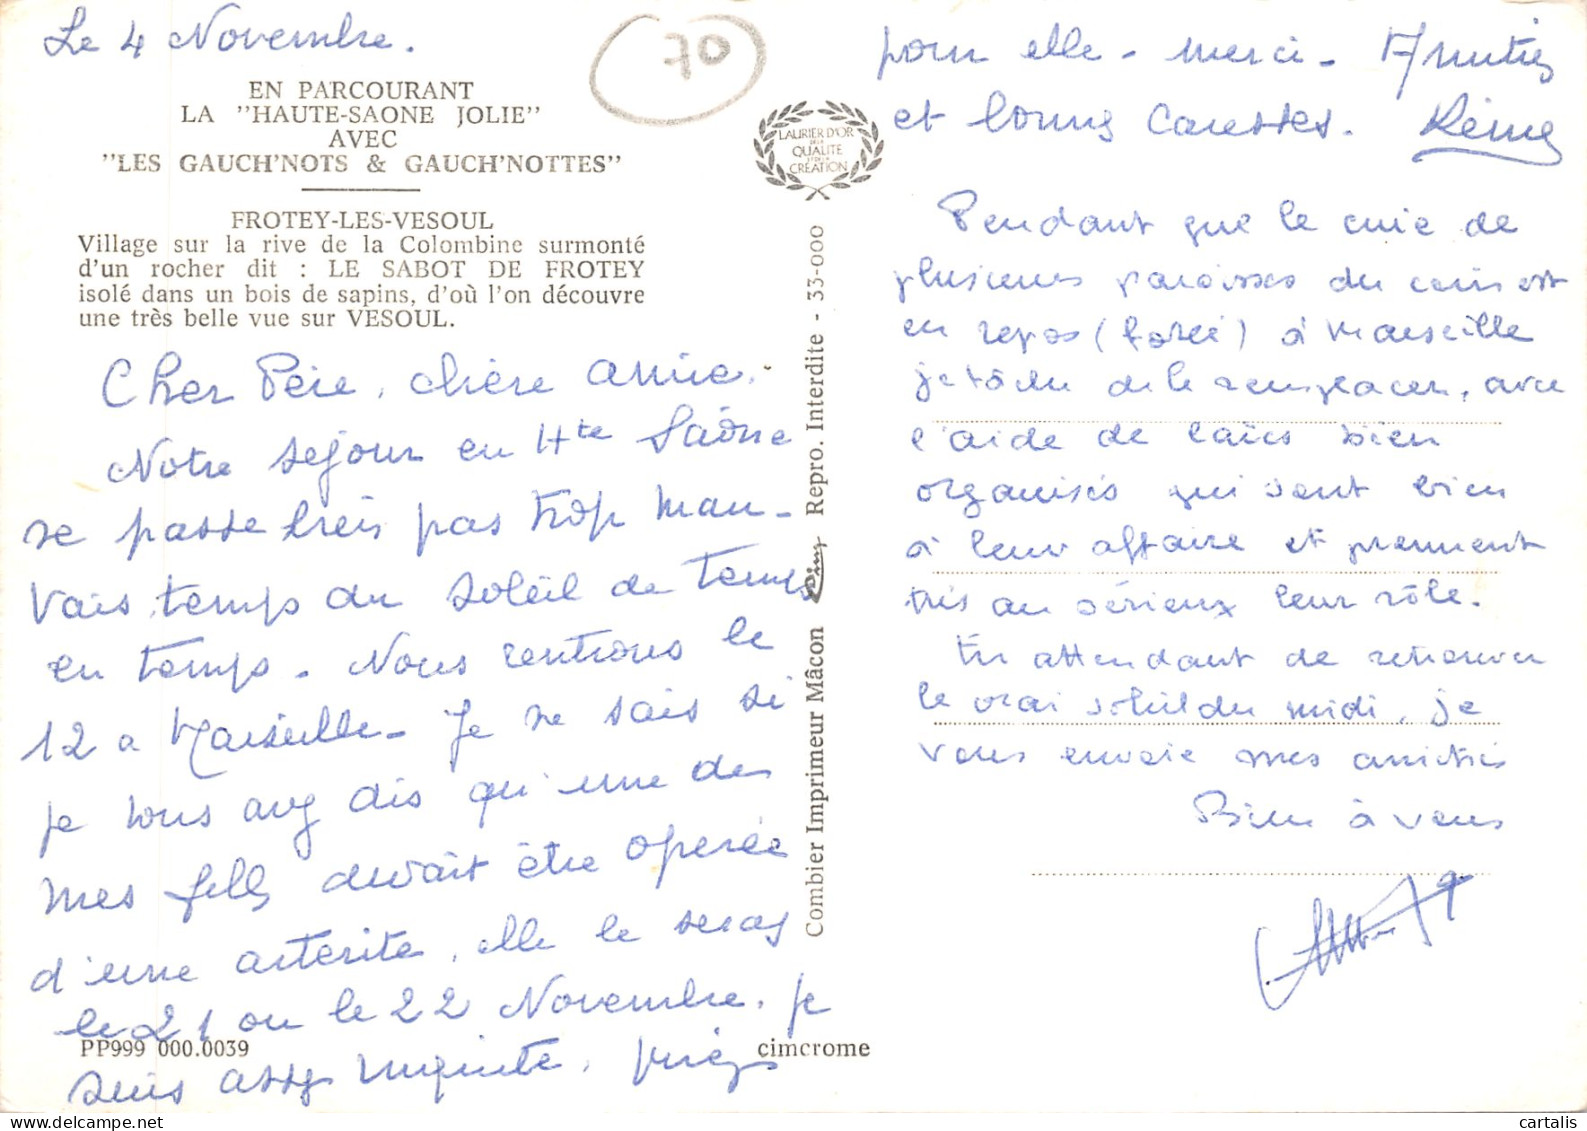 Le 4 Novembre.
70
EN PARCOURANT
LA "HAUTE-SAONE JOLIE"
AVEC
"LES GAUCH'NOTS & GAUCH'NOTTES"
FROTEY-LES-VESOUL
Village sur la rive de la Colombine surmonté
d'un rocher dit : LE SABOT DE FROTEY
isolé dans un bois de sapins, d'où l'on découvre
une très belle vue sur VESOUL.
Cher Père, chère amie.
Notre séjour en Hte Saône
se passe pas trop mau-
vais temps du soleil de temps
en temps. Nous rentrons le
12 a Marseille. Je ne sais si
je vous avez dis qu'une des
mes fells devait être opérée
d'une artérite, elle le seras
le 21 ou le 22 Novembre. je
suis assez inquiète, priez
PP999 000.0039
cimcrome
Combier Imprimeur Mâcon Cim Repro. Interdite - 33-000
LAURIER D'OR
DE LA
QUALITE
ET DE LA
CREATION
pour elle - merci - Amitiés
et bonnes caresses. Reine
Pendant que le curé de
plusieurs paroisses du coin est
en repos (forcé) à Marseille
je tâche de le remplacer, avec
l'aide de laïcs bien
organisés qui sont bien
à leur affaire et prennent
très au sérieux leur rôle.
En attendant de retrouver
le vrai soleil du midi, je
vous envoie mes amitiés
Bien à vous